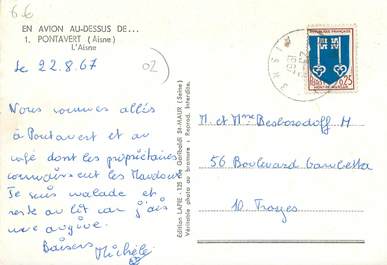 6.6
EN AVION AU-DESSUS DE...
1. PONTAVERT (Aisne)
L'Aisne
Le 22.8.67
02
Nous sommes allés
à Pontavert et au
café dont les propriétaires
connaissent les
Je suis malade et
reste au lit car j'ais
une angine.
Baisers
Michèle
Edition LAPIE - 125 rue Garibaldi St-MAUR (Seine)
Véritable photo au bromure : Reprod. Interdite.
REPUBLIQUE FRANÇAISE
0,25
MONT-DE-MARSAN
M. et Mme Besborodoff. M
56 Boulevard Gambetta
10. Troyes